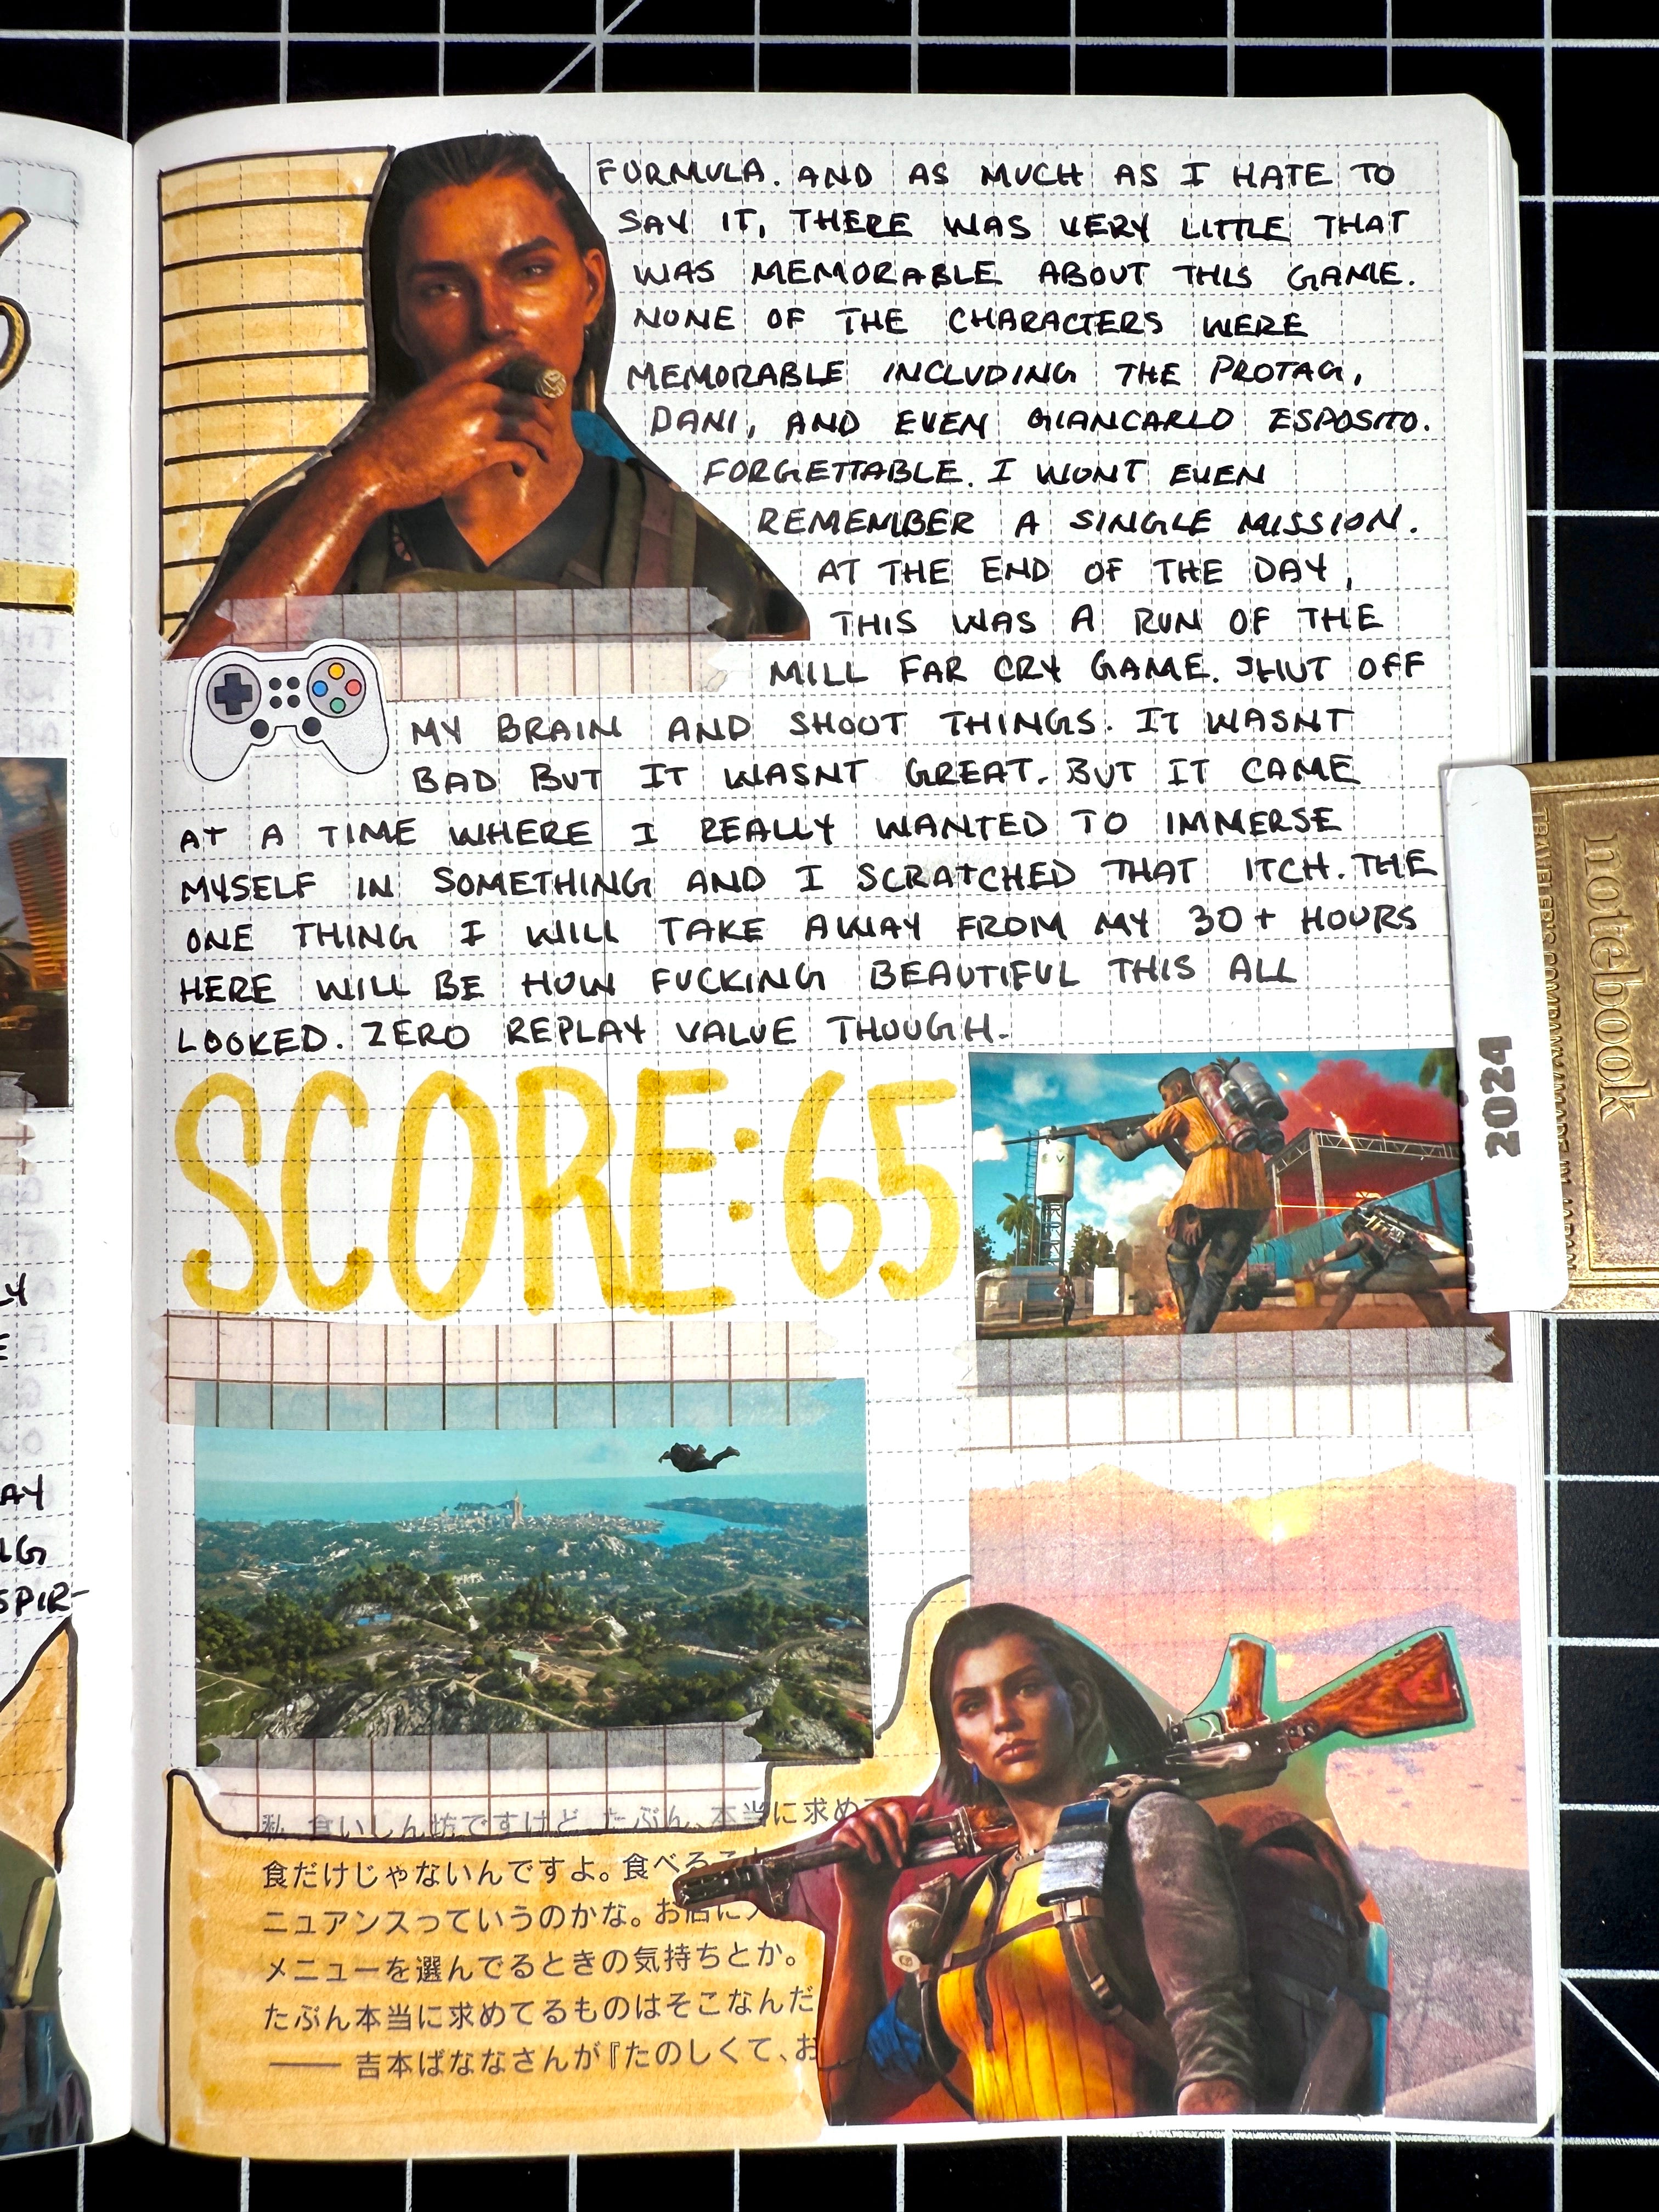 FORMULA. AND AS MUCH AS I HATE TO
SAY IT, THERE WAS VERY LITTLE THAT
WAS MEMORABLE ABOUT THIS GAME.
NONE OF THE CHARACTERS WERE
MEMORABLE INCLUDING THE PROTAG,
DANI, AND EVEN GIANCARLO ESPOSITO.
FORGETTABLE. I WONT EVEN
REMEMBER A SINGLE MISSION.
AT THE END OF THE DAY,
THIS WAS A RUN OF THE
MILL FAR CRY GAME. SHUT OFF
MY BRAIN AND SHOOT THINGS. IT WASNT
BAD BUT IT WASNT GREAT. BUT IT CAME
AT A TIME WHERE I REALLY WANTED TO IMMERSE
MYSELF IN SOMETHING AND I SCRATCHED THAT ITCH. THE
ONE THING I WILL TAKE AWAY FROM MY 30+ HOURS
HERE WILL BE HOW FUCKING BEAUTIFUL THIS ALL
LOOKED. ZERO REPLAY VALUE THOUGH.
SCORE: 65
私、食いしん坊ですけど、たぶん、本当に求め
食だけじゃないんですよ。食べるこ
ニュアンスっていうのかな。お店に
メニューを選んでるときの気持ちとか。
たぶん本当に求めてるものはそこなんだ
―― 吉本ばななさんが『たのしくて、お
2024
notebook
TRAVELER'S COMPANY MADE IN JAPAN
6
LY
E
AY
NG
SPIR-